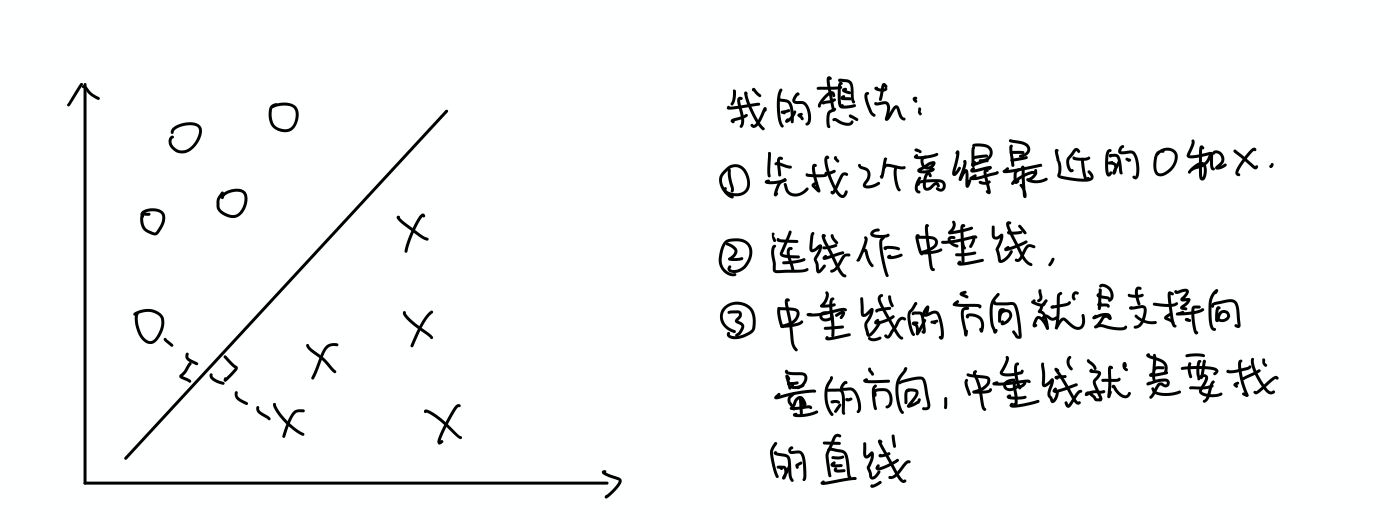 我的想法:
① 先找2个离得最近的O和X.
② 连线作中垂线,
③ 中垂线的方向就是支持向
量的方向,中垂线就是要找
的直线